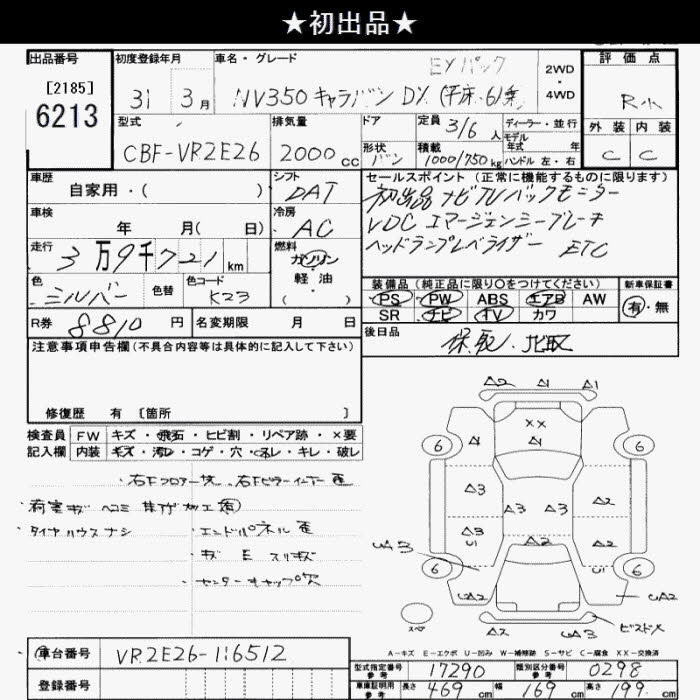 ★初出品★
出品番号
[2185]
6213
初度登録年月
31 3月
車名・グレード
EXパック
NV350キャラバン DX (平床・6)乗
2WD
・
4WD
評価点
R小
外装 内装
C C
型式
CBF-VR2E26
排気量
2000cc
ドア
形状
バン
定員 3/6人
積載 1000/750kg
ディーラー・並行
モデル
年式 年
ハンドル 左・右
車歴
自家用・( )
シフト
DAT
車検
年 月( 日)
冷房
AC
走行
3万9千721km
燃料
ガソリン
・
軽油
( )
色
シルバー
色替
色コード
K23
R券
8810円
名変期限 月 日
セールスポイント (正常に機能するものに限ります)
初出品 ナビTVバックモニター
VDC エマージェンシーブレーキ
ヘッドランプレベライザー ETC
装備品 (純正品に限り○をつけてください)
PS PW ABS エアB AW
SR ナビ TV カワ
新車保証書
有・無
後日品
保、取、北取
注意事項申告欄(不具合内容等は具体的に記入して下さい)
修復歴 有 [箇所 ]
検査員
記入欄
FW キズ・飛石・ヒビ割・リペア跡・×要
内装 キズ・汚レ・コゲ・穴・スレ・キレ・破レ
・右Fフロアー 右Fピラーインナー歪
・荷室キズ ヘコミ 加工有
・タイヤハウスナシ ・エンドパネル歪
・キズ E スリキズ
・センターキャップ欠
△2 △1 △1
××
6 △1 △1 6
△3 △3 △3 △2
△3 U1 △2 △2 U1
UA3
6 6
UA2 UA2
スペア
△2 UA3 ビス×
A-キズ E-エクボ U-凹み W-補修跡 S-サビ C-腐食 XX-交換済
車台番号
VR2E26-116512
登録番号
型式指定番号 17290
類別区分番号 0298
車庫証明用参考 長さ 469cm 幅 169cm 高さ 199cm